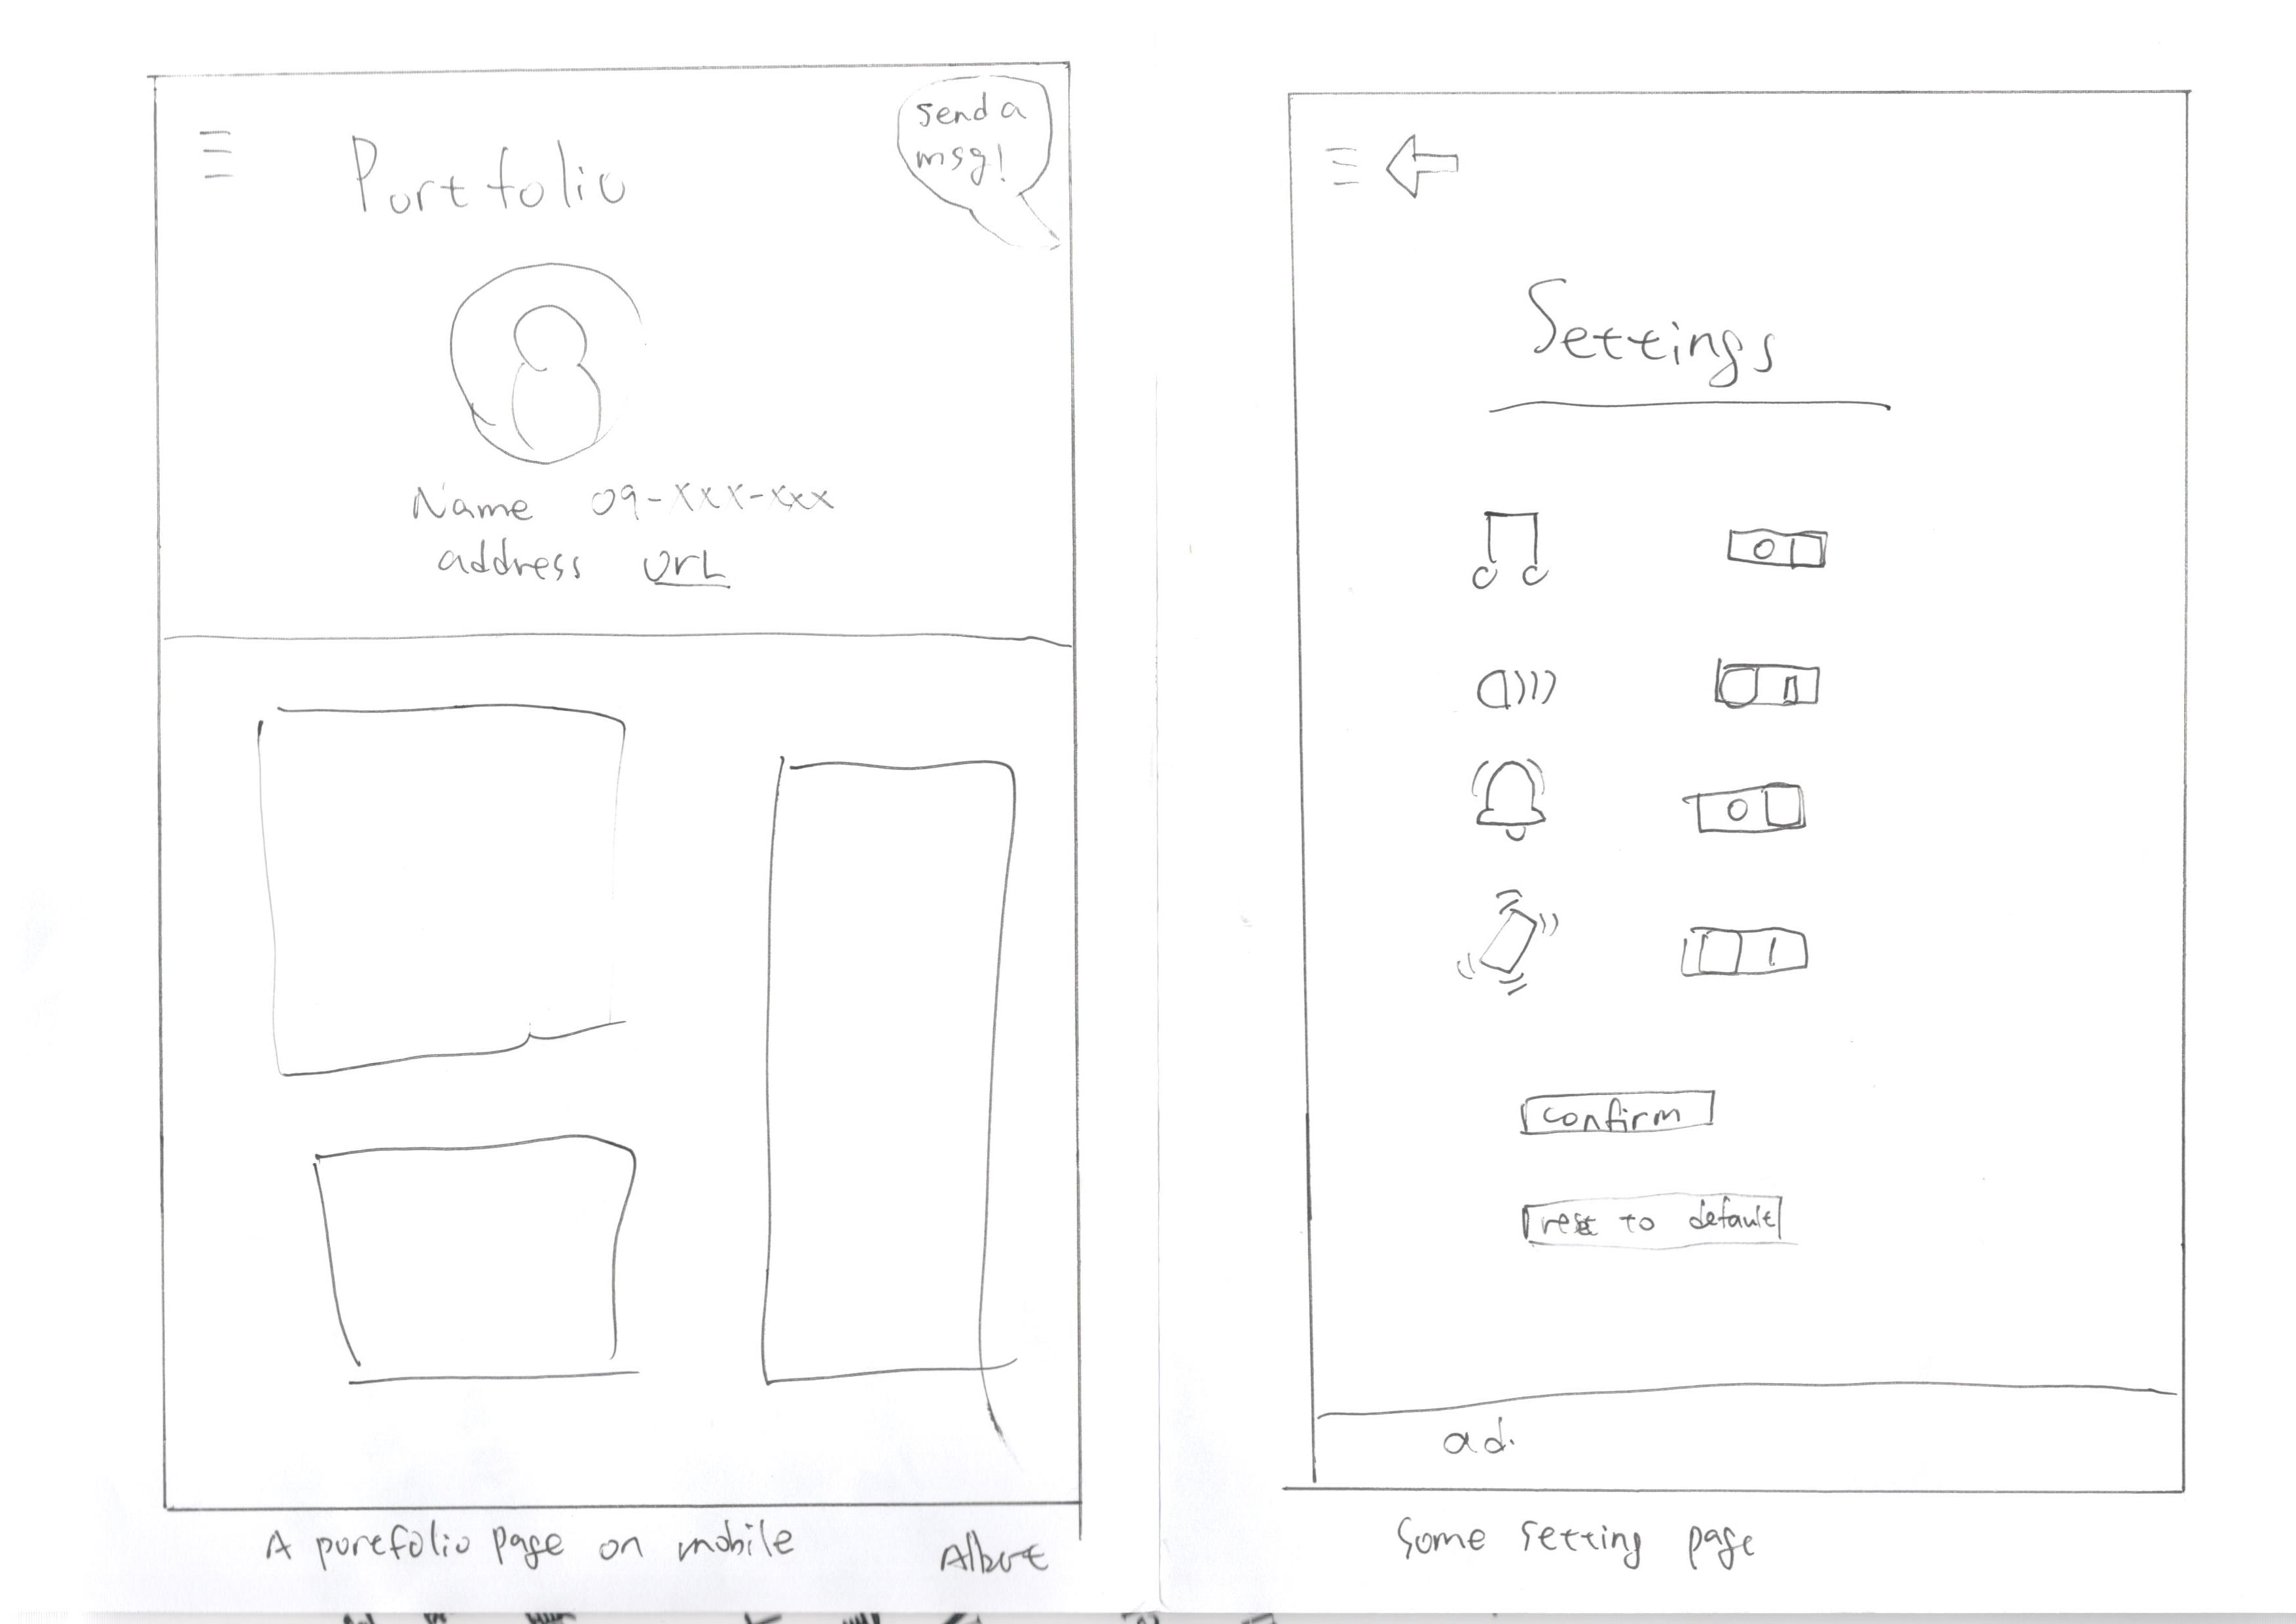 Portfolio
send a
msg!
Name 09-xxx-xxx
address UrL
A portfolio page on mobile
Albert
Settings
confirm
reset to default
ad.
Some setting page